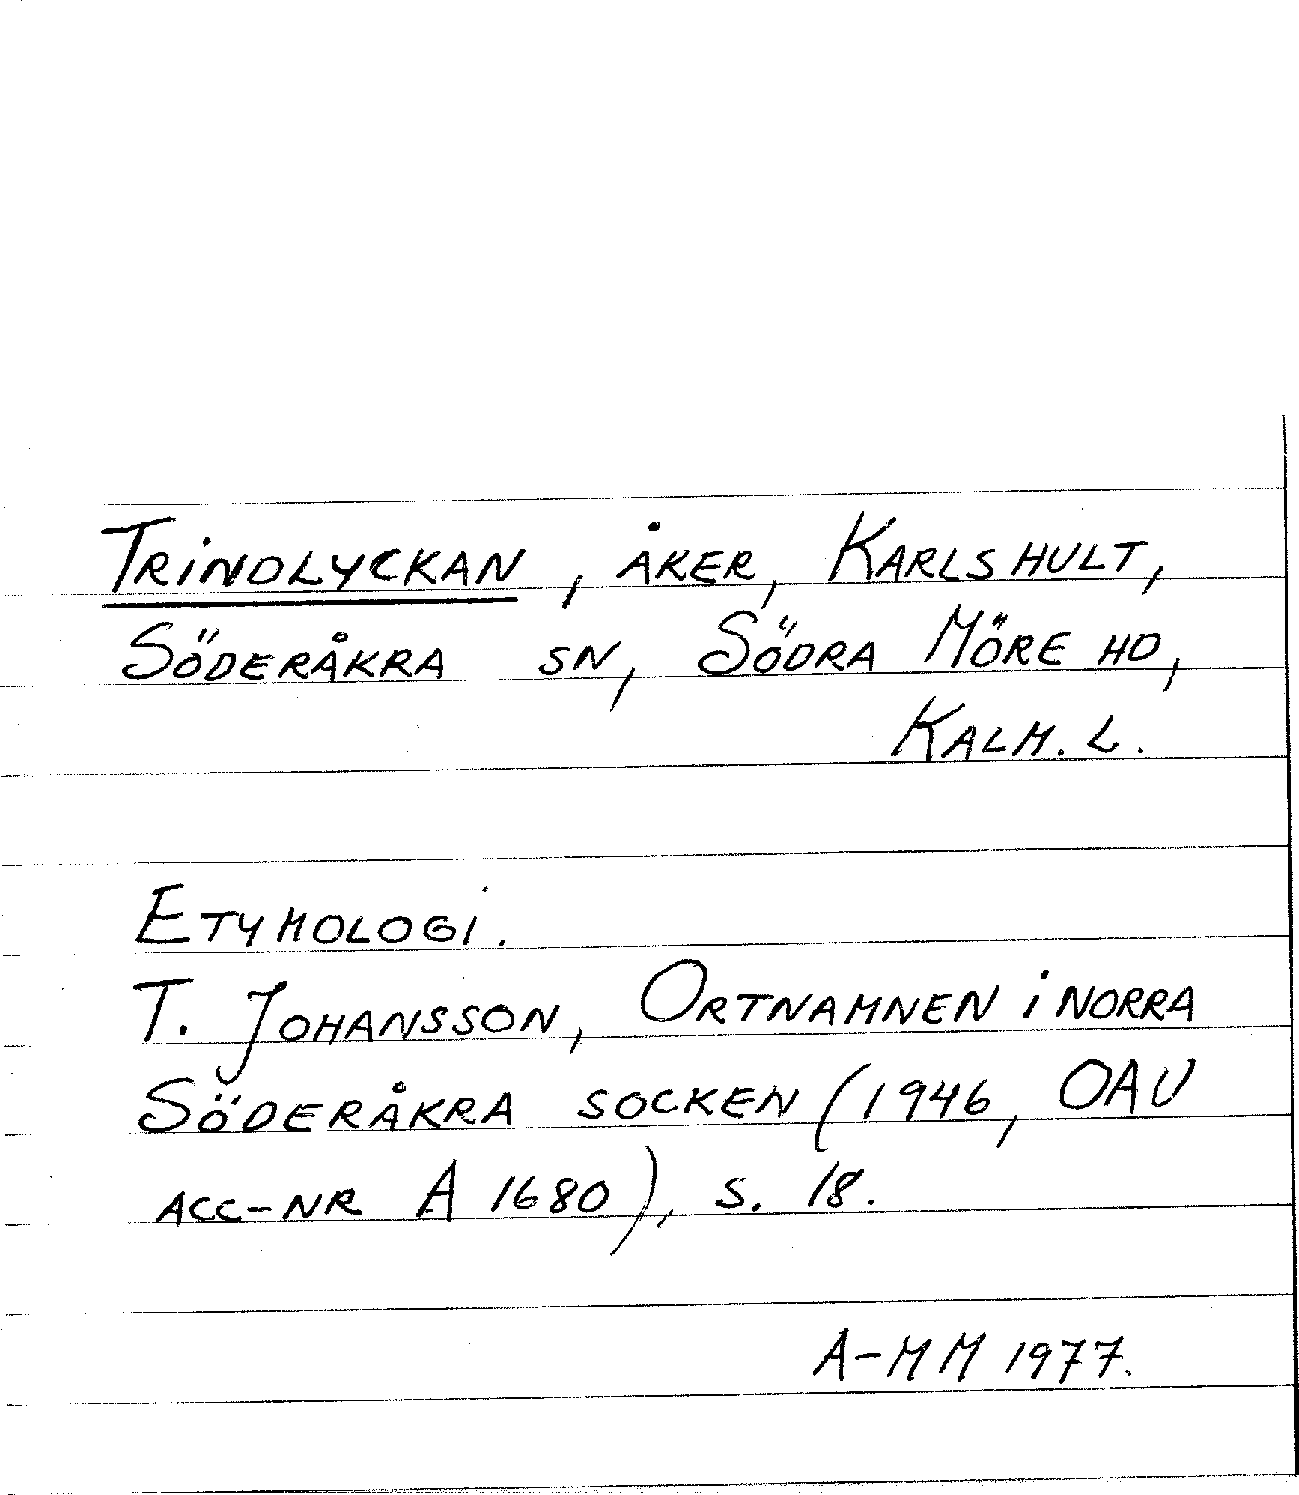 Trindlyckan, åker, Karlshult,
Söderåkra sn, Södra Möre hd,
Kalm. l.
Etymologi.
T. Johansson, Ortnamnen i norra
Söderåkra socken (1946, OAU
acc-nr A 1680), s. 18.
A-MM 1977.